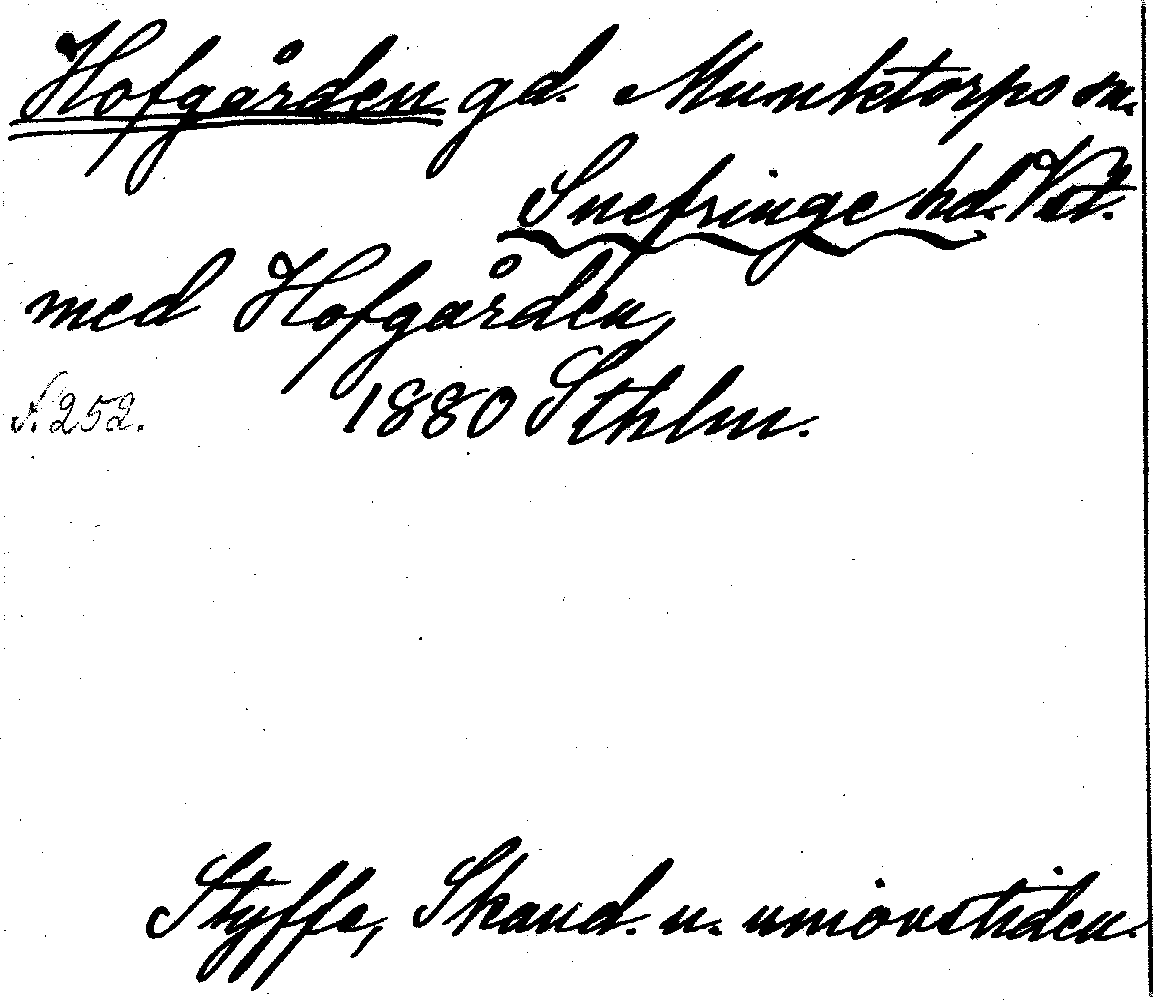 Hofgården gd. Munktorps sn.
Snefringe hd. Vstm.
med Hofgården,
S. 252. 1880 Sthlm.
Styffe, Skand. u. unionstiden.